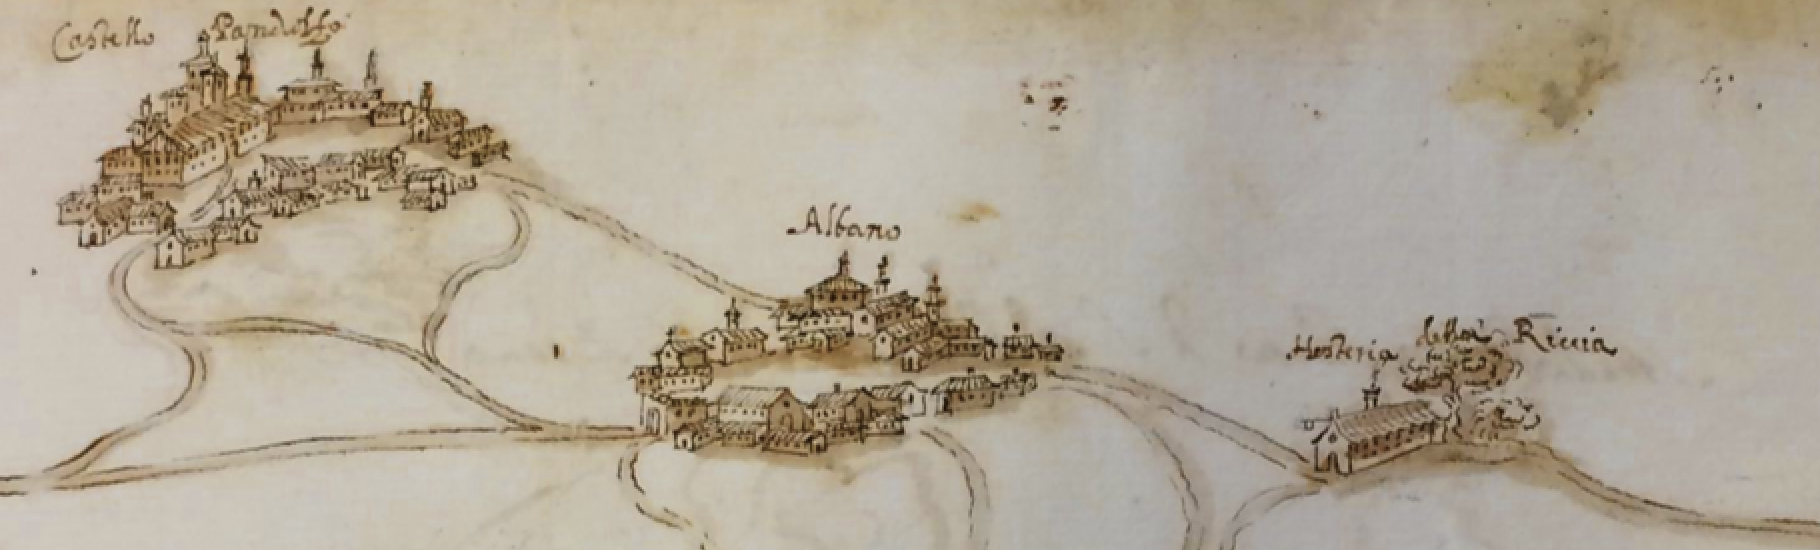 Castello Pandolfo
Albano
Hosteria della Riccia